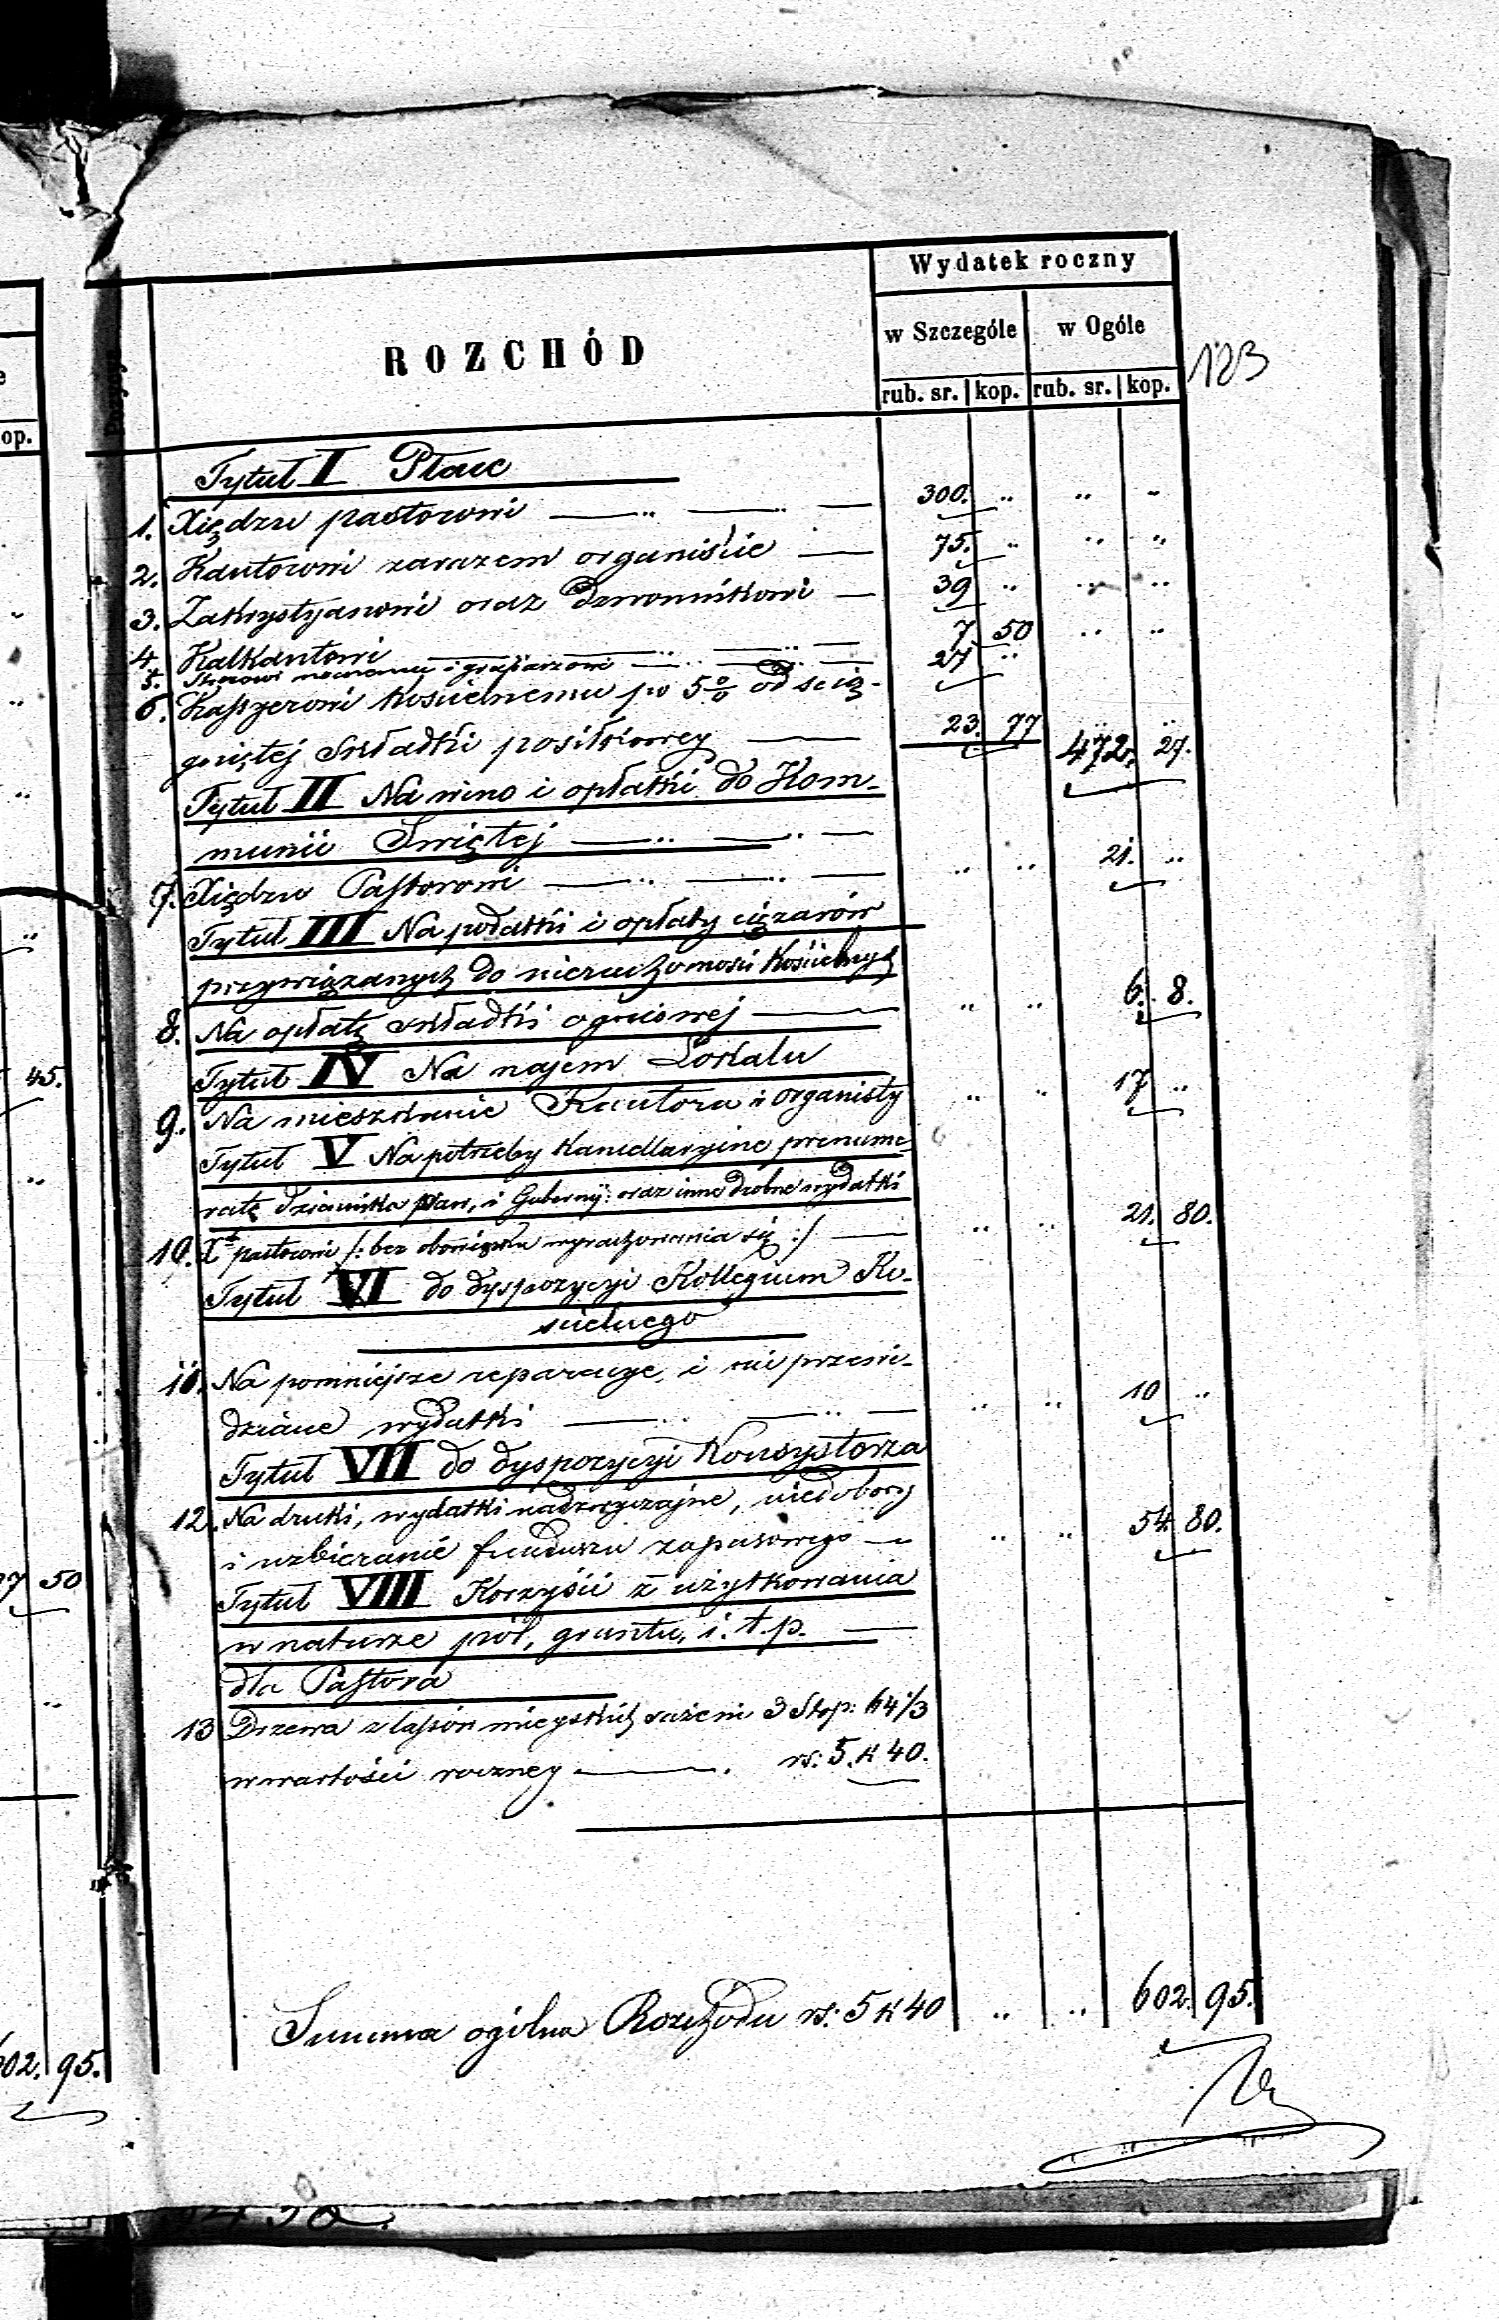 Wydatek roczny
ROZCHÓD
w Szczególe w Ogóle
rub. sr. kop. rub. sr. kop.
123
op.
Tytuł I Płace
1. Xiędzu pastorowi 300. " " "
2. Kantorowi zarazem organiście 75. " " "
3. Zakrystyanowi oraz dzwonnikowi 39 " " "
4. Kalkantowi 7. 50 " "
5. Stróżowi nocnemu i grabarzowi 27 "
6. Kassyerowi kościelnemu po 5% od ścią-
gniętej składki posiłkowey 23. 77 472. 27.
Tytuł II Na wino i opłatki do Kom-
munii Swiętej
7. Xiędzu Pastorowi " " 21. "
Tytuł III Na podatki i opłaty ciężarów
przywiązanych do nieruchomości kościelnych
8. Na opłatę składki ogniowej " " 6. 8.
Tytuł IV Na najem Lokalu
9. Na mieszkanie Kantora i organisty " " 17 "
Tytuł V Na potrzeby kancellaryine prenume-
ratę Dziennika Warw, i Gubernij: oraz inne drobne wydatki
10. Xd pastorowi /: bez obowiązku wyrachowania się :/ " " 21. 80.
Tytuł VI do dyspozycyi Kollegium Ko-
scielnego
11. Na pomniejsze reparacye, i nie przewi-
dziane wydatki " " 10 "
Tytuł VII do dyspozycyi Konsystorza
12. Na druki, wydatki nadzwyczajne, niedobory
i uzbieranie funduszu zapasowego " " 54. 80.
Tytuł VIII Korzyści z użytkowania
w naturze pól, gruntu, i. t. p.
dla Pastora
13 Drzewa z lassów mieyskich sążeni 3 Stop: 64 1/3
w wartości roczney rs: 5. k 40.
Summa ogólna Rozchodu rs: 5 k 40 " " 602. 95.
45.
50
602. 95.